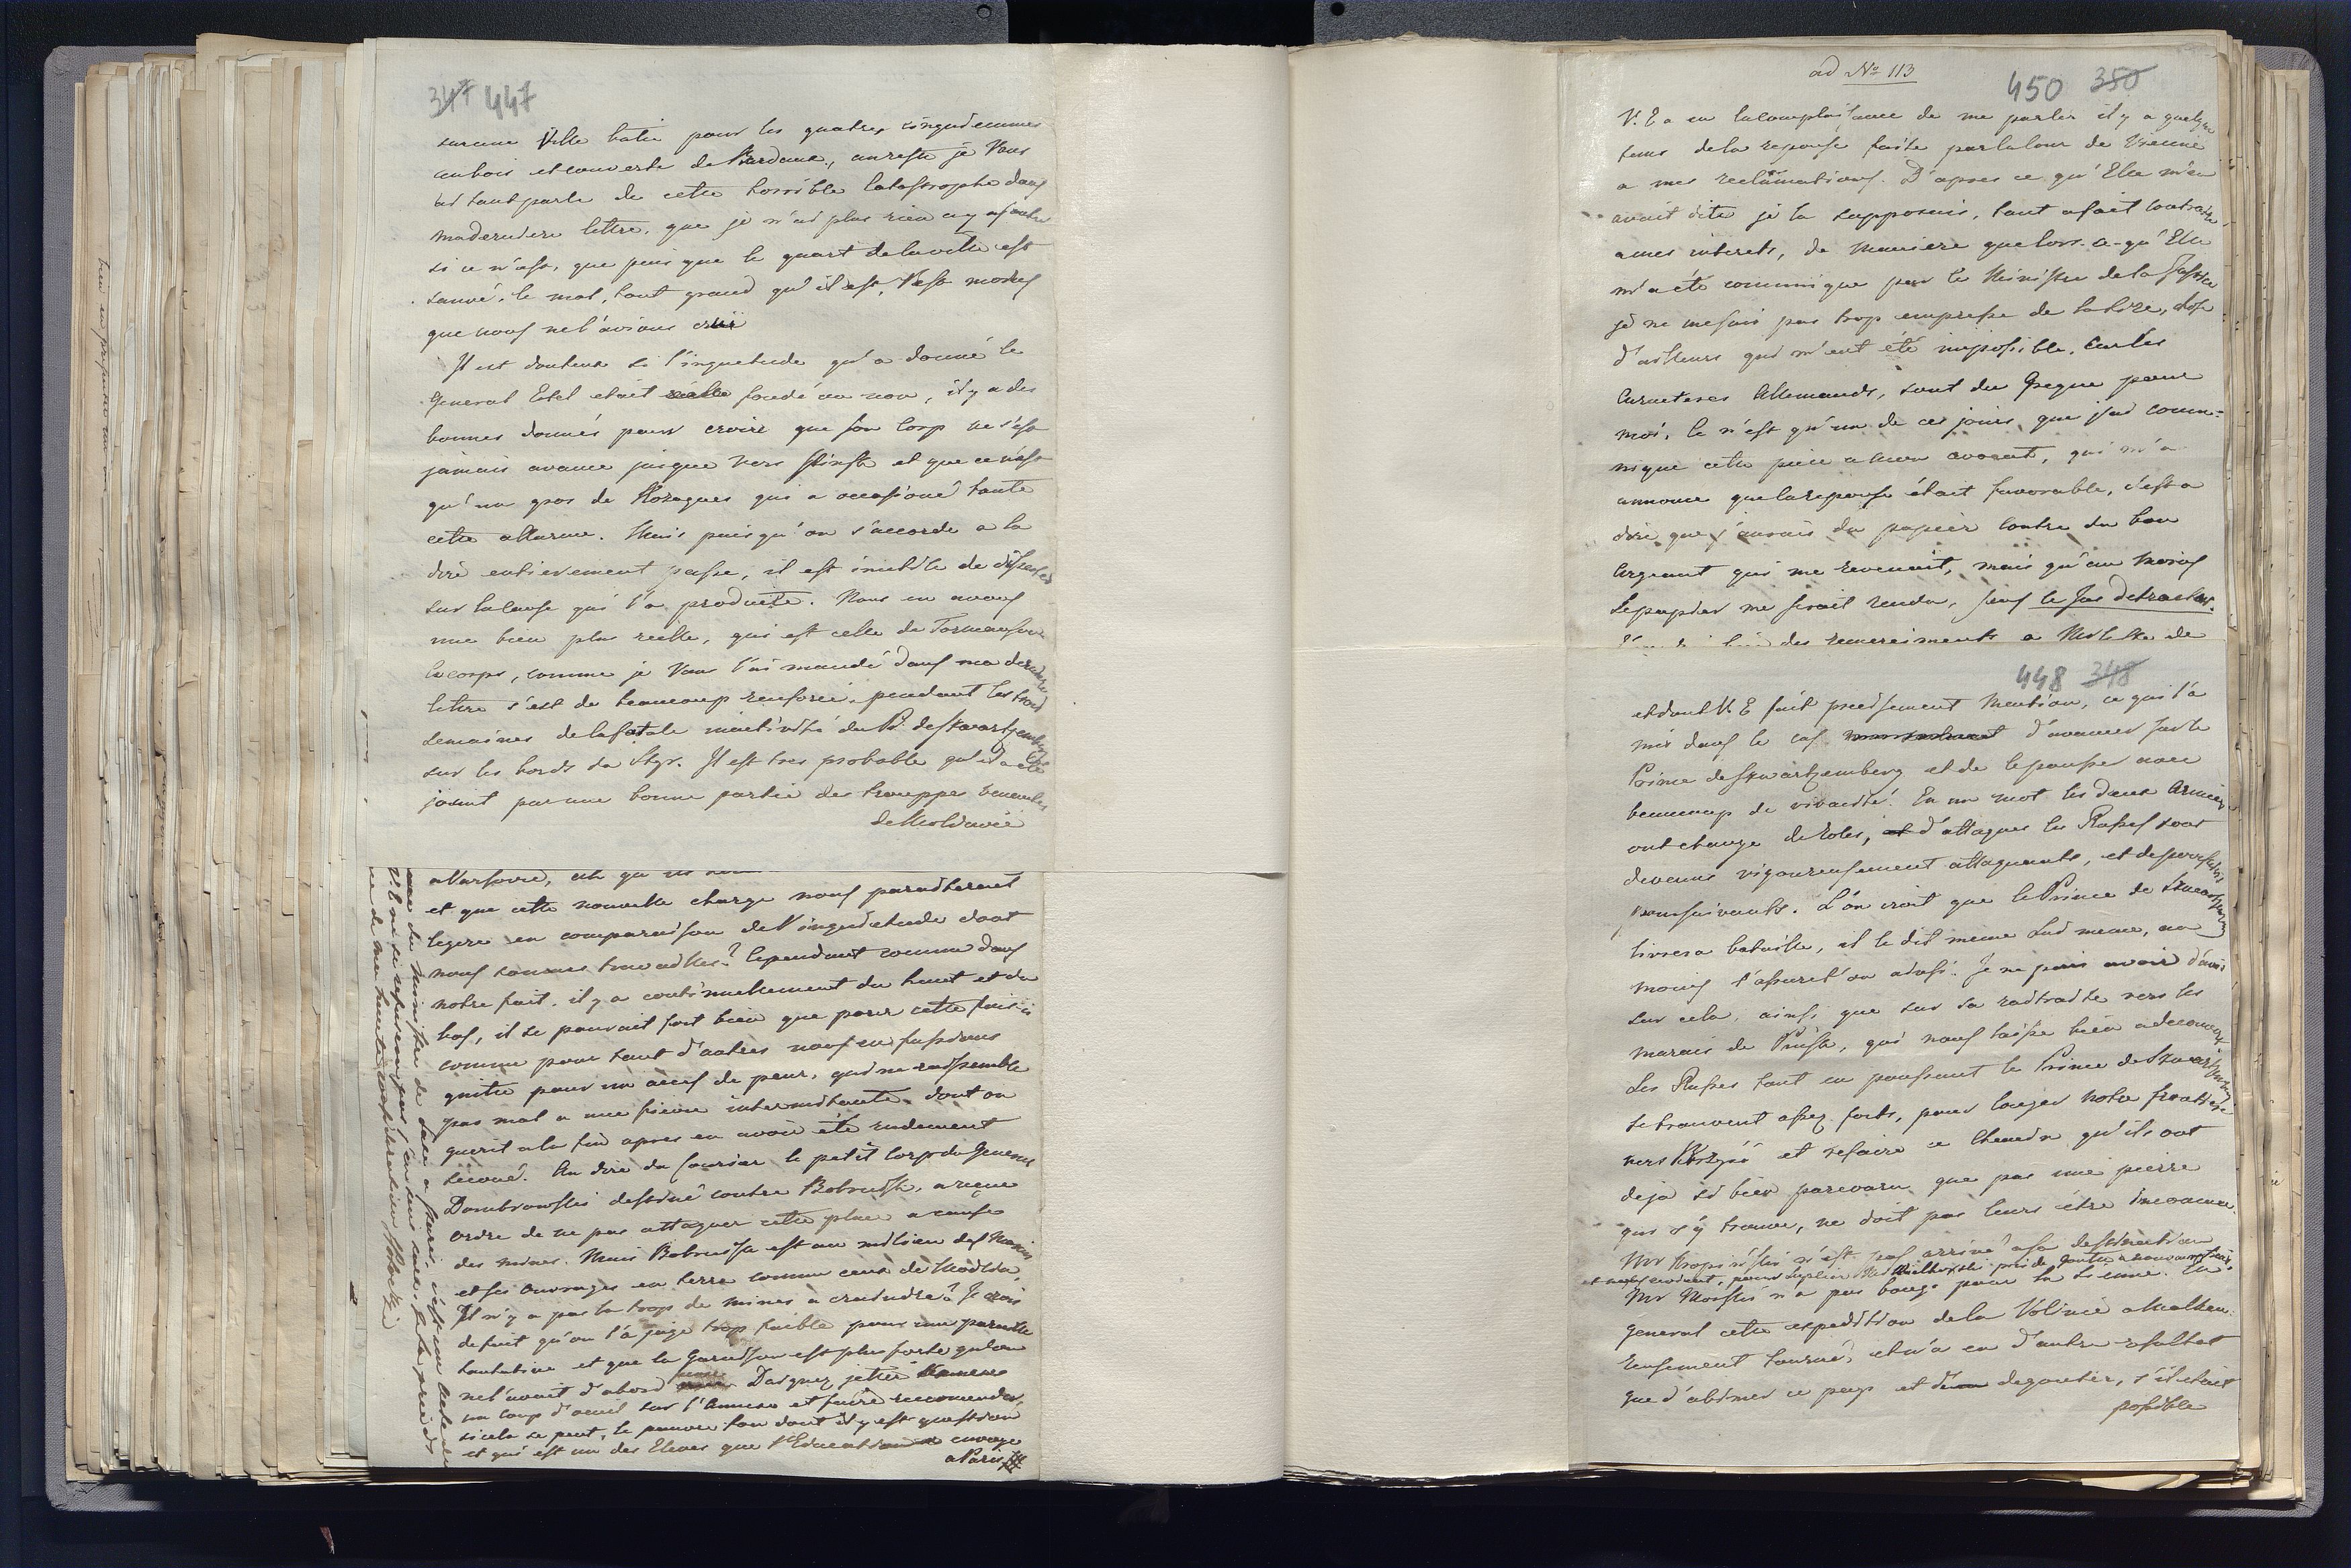 347 447
sur une Ville batie pour les quatres cinquiemmes
en bois et couverte de Bardeaux, au reste je Vous
ai tant parlé de cette horrible Catastrophe dans
ma derniere lettre, que je n'ai plus rien a y ajouter
si ce n'est, que puis que le quart de la ville est
sauvé, le mal, tout grand qu'il est, l'est moins
que nous ne l'avions cru
Il est douteux si l'inquietude qu'a donné le
General Ertel etait fondé ou non, il y a des
bonnes donnés pour croire que son Corp ne s'est
jamais avancé jusque vers Pinsk et que ce n'est
qu'un gros de Kozaques qui a occasioné toute
cette allarme. Mais puis qu'on s'accorde a la
dire entierement passe, il est inutile de disputer
sur la cause qui l'a produite. Nous en avons
une bien plus reelle, qui est celle de Tormansow
Ce corps, comme je Vous l'ai mandé dans ma derniere
lettre s'est de beaucoup renforcé, pendant les trois
semaines de la fatale inactivité du P. de Szwartzemberg
sur les bords du Styr. Il est tres probable qu'il a eté
joint par une bonne partie des trouppes venantes
de Moldavie
a Varsovie,
et que cette nouvelle charge nous paraitereit
legere en comparaison de l'inquietude dont
nous sommes travailles? Cependant comme dans
notre fait, il y a continuellement du haut et du
bas, il se pouvait fort bien que pour cette fois-ci
comme pour tant d'autres nous en fussions
quitte pour un accés de peur, qui ne ressemble
pas mal a une fievre intermitente, dont on
guerit a la fin apres en avoir été rudement
secoué. Au dire du Courier le petit Corp du General
Dombrowski destiné contre Bobruisk, a reçue
ordre de ne pas attaquer cette place a cause
des mines. Mais Bobruisk est au milieu des Marais
et ses ouvrages en terre comme ceux de Modlin,
Il n'y a pas la trop de mines a craindre? Je crois
de fait qu'on l'a jugé trop faible pour une pareille
tentative et que la Garnison est plus forte qu'on
ne l'avait d'abord pensé Daignez jetter
un coup d'oeuil sur l'Annexe et faire recomender,
si cela se peut, le pauvre fou dont il y est question
et qui est un des Eleves que l'Education envoye
a Paris
ad No 113
450 350
V. E a eu la complaisance de me parler il y a quelque
tems de la reponse faite par la Cour de Vienne
a mes reclamations. D'apres ce qu'Elle m'en
avait dite je la supposais, tout a fait contraire
a mes interets, de maniere que lors-a-qu'Elle
m'a été comunique par le Ministre de la Justice
je ne me suis pas trop empressé de la lire, chose
d'ailleurs qui m'eut été impossible, car les
Caracteres Allemands, sont du Greque pour
moi. Ce n'est qu'un de ces jours, que j'ai comu-
niqué cette piece a mon avocat, qui m'a
annoncé que la reponse était favorable, c'est a
dire que j'aurais du papier contre du bon
Argeant qui me revenait, mais qu'au moins
le papier me serait rendu,
des remerciments a
448 348
et dont V. E fait precisement Mention, ce qui l'a
mis dans le cas d'avancer sur le
Prince de Szwartzemberg et de le pousser avec
beaucoup de vivacité. En un mot les deux Armées
ont changé de roles, d'attaqués les Russes sont
devenus vigoureusement attaquants, et de poursuivis
poursuivants. L'on croit que le Prince de Szwartzemberg
livrera bataille, il le dit meme lui meme, au
moins l'assure t'on ainsi. Je ne puis avoir d'avis
sur cela, ainsi que sur sa raitraite vers les
marais de Pinsk, qui nous laisse bien a decouvert
Les Russes tout en poussant le Prince de Szwartzemberg
se trouvent assez forts, pour longer notre frontiere
vers et refaire ce Chemin qu'ils ont
deja si bien parcouru que pas une pierre
qui s'y trouve, ne doit pas leurs être inconnue.
Mr Kropinski n'est pas arrivé a sa destination
et Mr Morski n'a pas bougé pour la sienne. En
General cette expedition de la Volinie a malheu-
reusement tourné, et n'a eu d'autre resultat
que d'abimer ce pays et degouter, s'il etait
possible